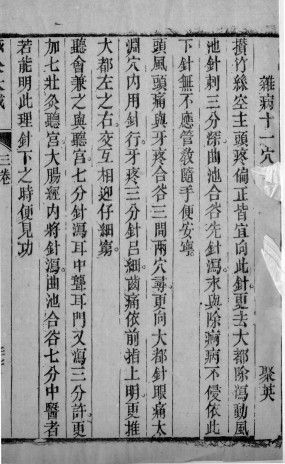 雜病十一穴 聚英
攅竹絲空主頭疼偏正皆宜向此針更去大都除瀉動風
池針刺三分深曲池合谷先針瀉永與除痾病不侵依此
下針無不應管教隨手便安寧
頭風頭痛與牙疼合谷三間兩穴尋更向大都針眼痛太
淵穴内用針行牙疼三分針呂細齒痛依前指上明更推
大都左之右交互相迎仔細窮
聽會兼之與聽宮七分針瀉耳中聾耳門又瀉三分許更
加七壯灸聽宮大腸經内將針瀉曲池合谷七分中醫者
若能明此理針下之時便見功
大成
三卷